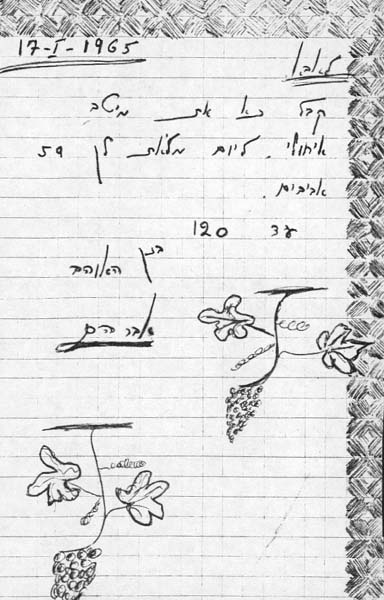 17-I-1965
לאבא
קבל נא את מיטב
איחולי. ליום מלאת לך 59
אביבים.
עד 120
בנך האוהב
אברהם